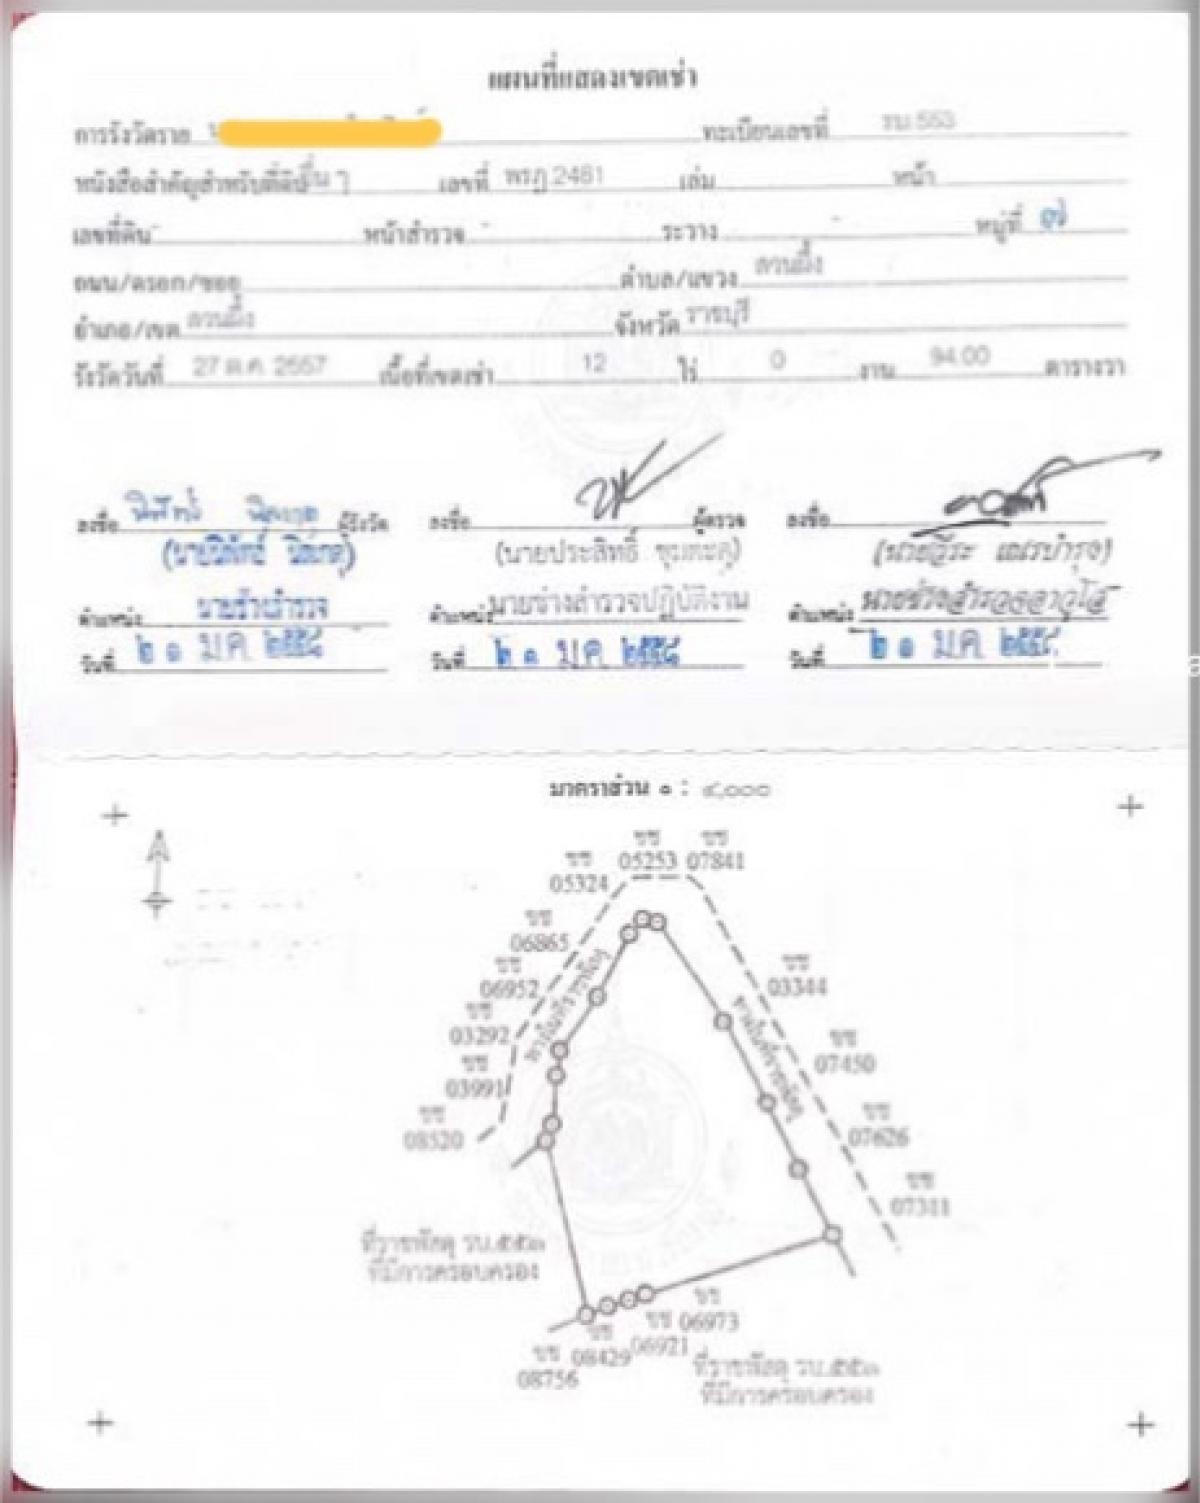 แผนที่แสดงเขตเช่า
การรังวัดราย ทะเบียนเลขที่ รบ.553
หนังสือสำคัญสำหรับที่ดิน อื่น ๆ เลขที่ พรฎ.2481 เล่ม หน้า
เลขที่ดิน - หน้าสำรวจ - ระวาง - หมู่ที่ ๗
ถนน/ตรอก/ซอย ตำบล/แขวง สวนผึ้ง
อำเภอ/เขต สวนผึ้ง จังหวัด ราชบุรี
รังวัดวันที่ 27 ต.ค. 2557 เนื้อที่เขตเช่า 12 ไร่ 0 งาน 94.00 ตารางวา
ลงชื่อ ผู้รังวัด ลงชื่อ ผู้ตรวจ ลงชื่อ
(นายประสิทธิ์
ตำแหน่ง นายช่างสำรวจ ตำแหน่ง นายช่างสำรวจปฏิบัติงาน ตำแหน่ง นายช่างสำรวจอาวุโส
วันที่ ๒๑ ม.ค. ๒๕๕๘ วันที่ ๒๑ ม.ค. ๒๕๕๘ วันที่ ๒๑ ม.ค. ๒๕๕๘
มาตราส่วน ๑ : ๔,๐๐๐
ขช 05253
ขช 07841
ขช 05324
ขช 06865
ขช 06952
ขช 03292
ขช 03991
ขช 08520
ขช 03344
ขช 07450
ขช 07626
ขช 07311
ทางในที่ราชพัสดุ
ทางในที่ราชพัสดุ
ที่ราชพัสดุ รบ.๕๕๓
ที่มีการครอบครอง
ขช 06973
ขช 06921
ขช 08429
ขช 08756
ที่ราชพัสดุ รบ.๕๕๓
ที่มีการครอบครอง